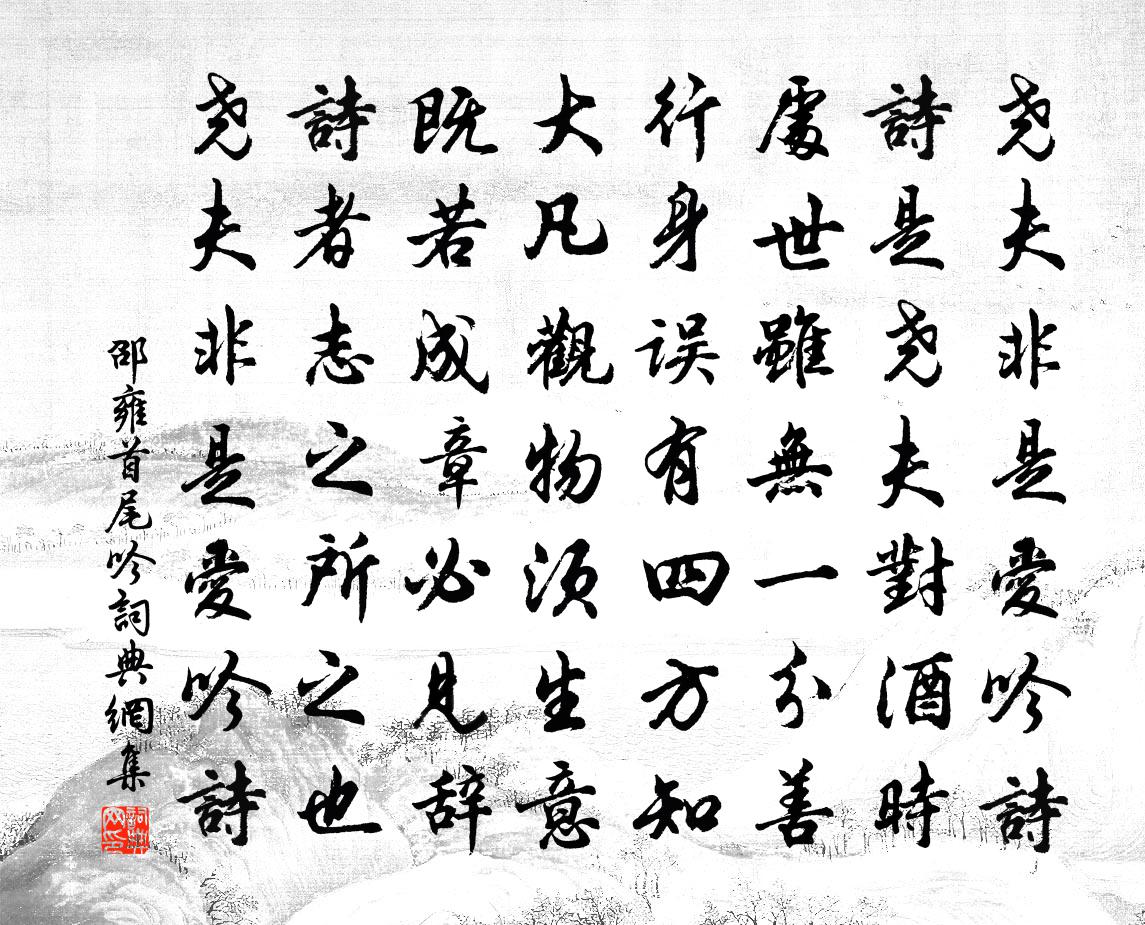 尧夫非是愛吟詩
詩是尧夫對酒時
處世雖無一分善
行身误有四方知
大凡觀物須生意
既若成章必見辞
詩者志之所之也
尧夫非是愛吟詩
邵雍首尾吟詞典網集